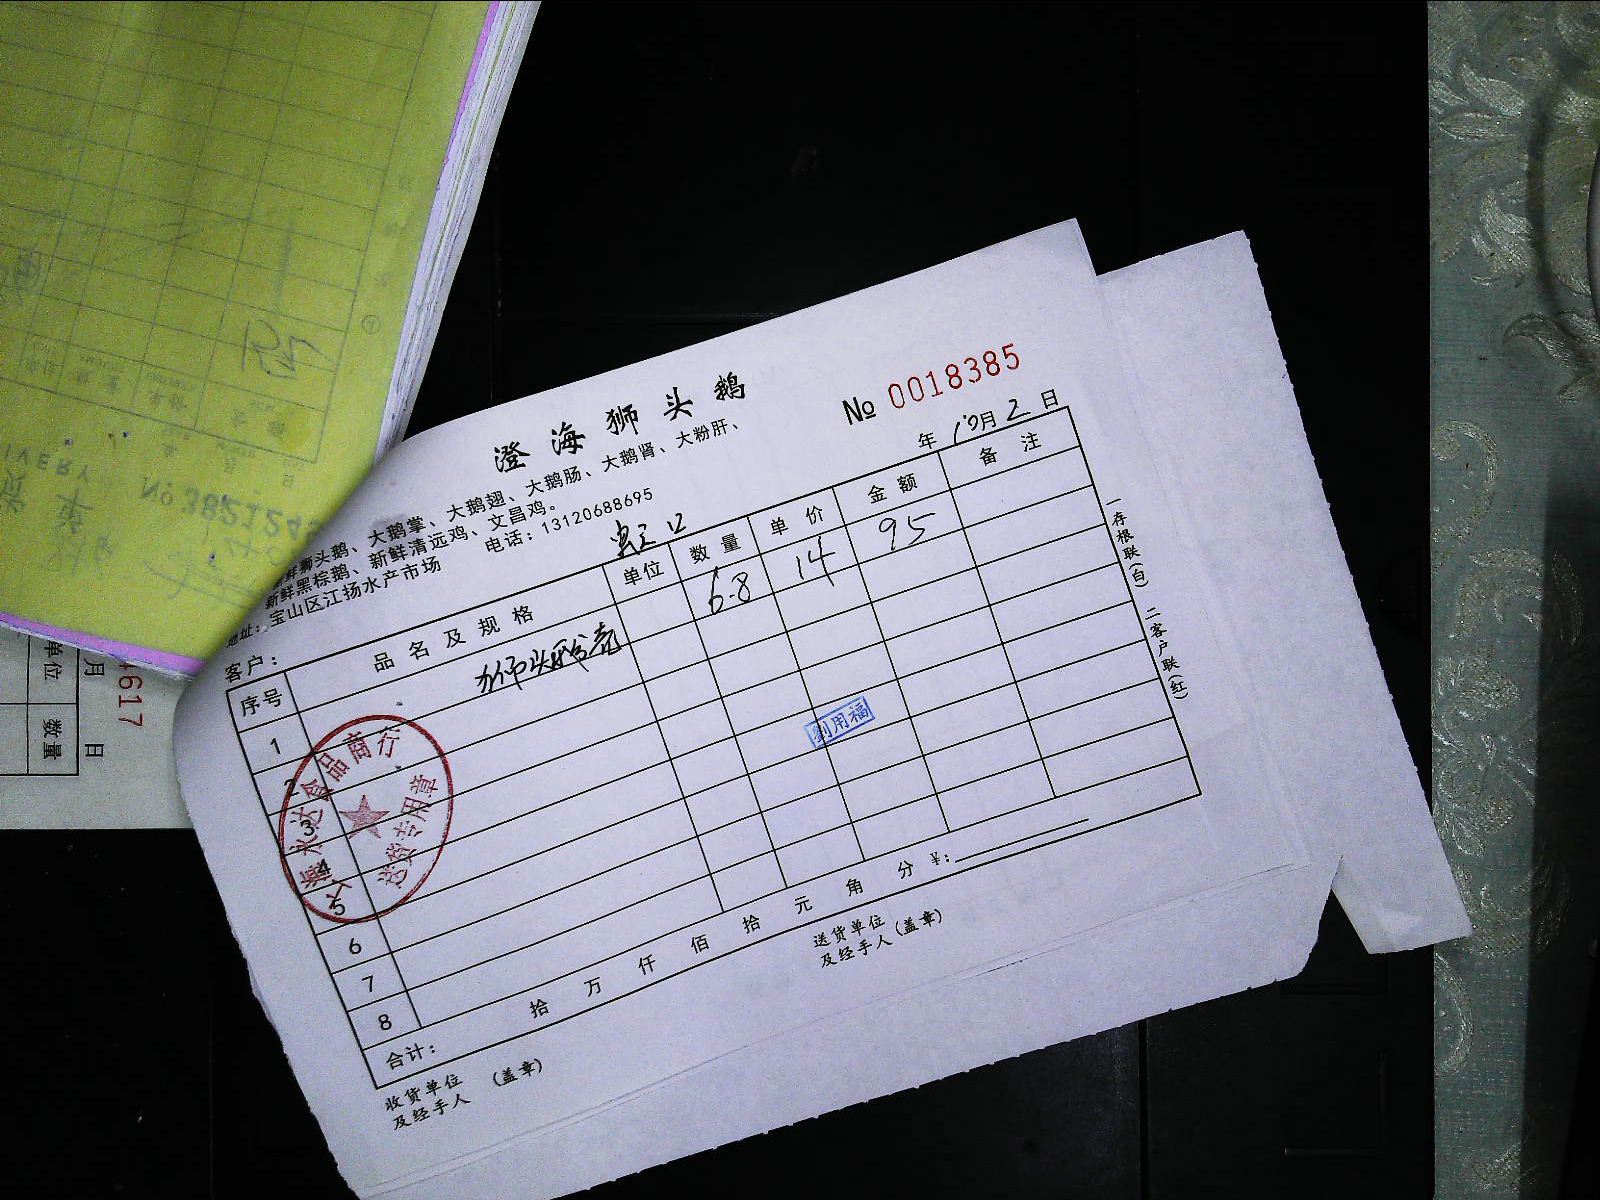 澄海狮头鹅
№ 0018385
鲜狮头鹅、大鹅掌、大鹅翅、大鹅肠、大鹅肾、大粉肝、
新鲜黑棕鹅、新鲜清远鸡、文昌鸡。
地址：宝山区江扬水产市场
电话：13120688695
年 10月 2 日
客户：
序号 品名及规格 单位 数量 单价 金额 备注
1 狮头鹅 6.8 14 95
2
3
4
5
6
7
8
合计： 拾 万 仟 佰 拾 元 角 分 ¥：
收货单位
及经手人 (盖章)
送货单位
及经手人 (盖章)
一存根联(白) 二客户联(红)
海永达食品商行
送货专用章
劉用福
№ 382124
IVERY
6617
月 日
单位 数量